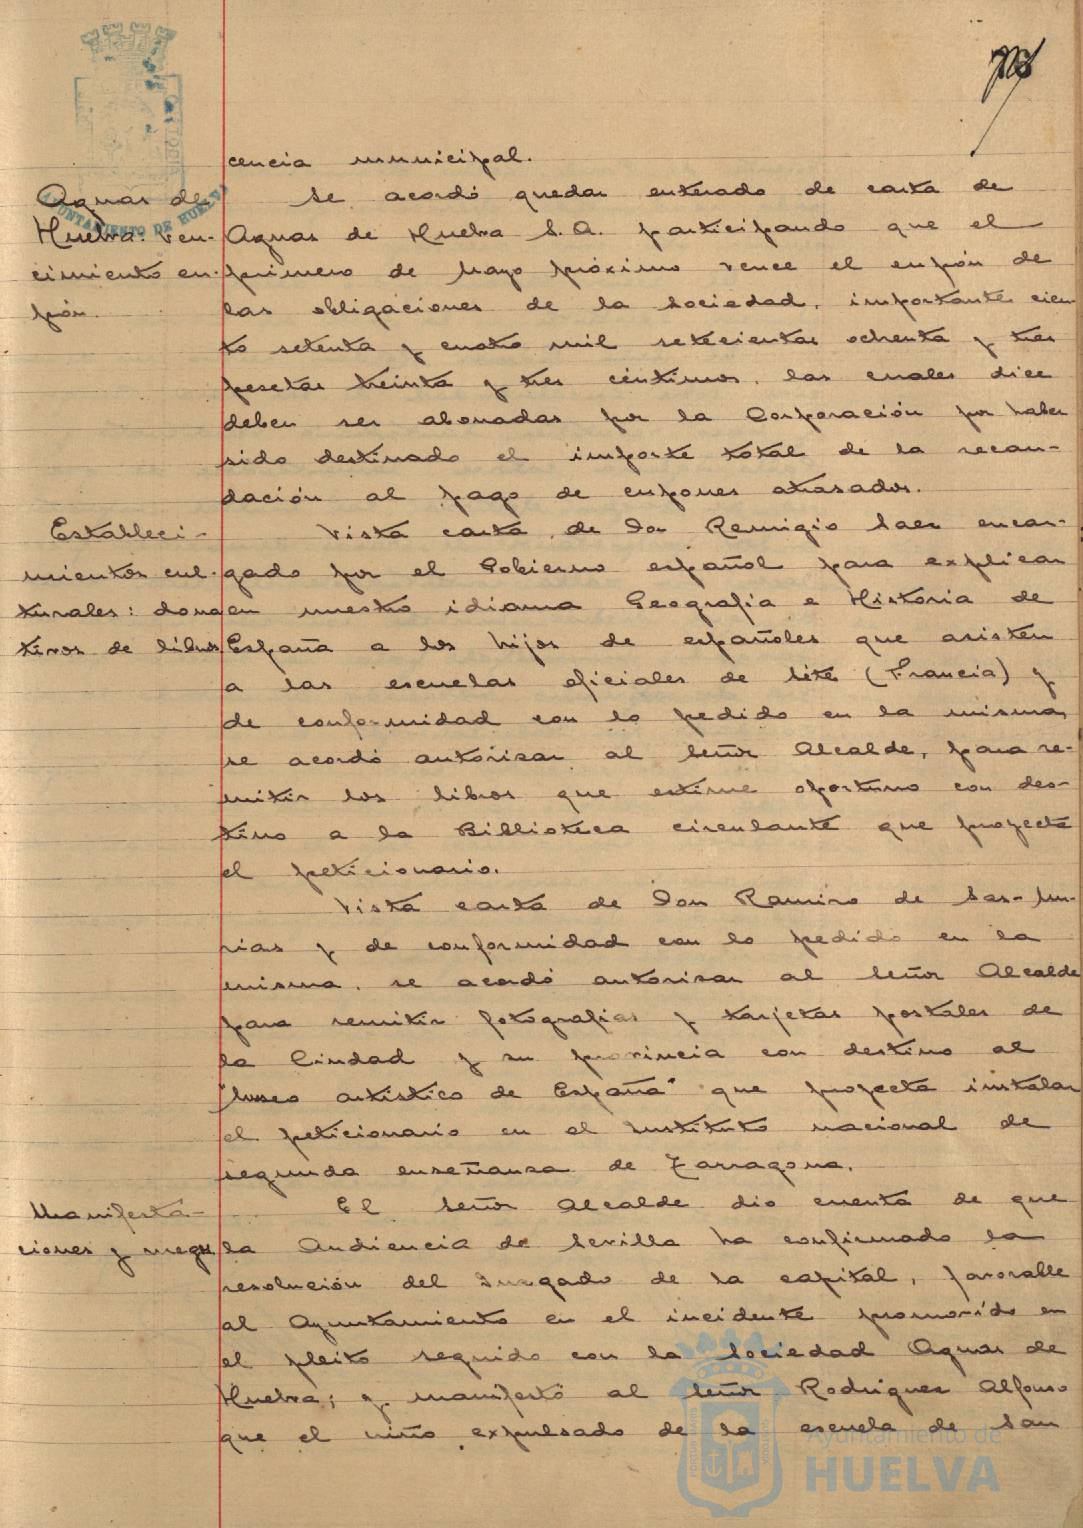 cencia municipal.
Aguas de
Huelva: ven-
cimiento cu-
pón.
Se acordó quedar enterado de carta de
Aguas de Huelva S.A. participando que el
primero de Mayo próximo vence el cupón de
las obligaciones de la Sociedad, importante cien-
to setenta y cuatro mil setecientas ochenta y tres
pesetas treinta y tres céntimos, las cuales dice
deben ser abonadas por la Corporación por haber
sido destinado el importe total de la recau-
dación al pago de cupones atrasados.
Estableci-
mientos cul-
turales: dona
tivos de libros
Vista carta de Don Remigio Saer encar-
gado por el Gobierno español para explicar
en nuestro idioma Geografia e Historia de
España a los hijos de españoles que asisten
a las escuelas oficiales de Séte (Francia) y
de conformidad con lo pedido en la misma,
se acordó autorizar al Señor Alcalde, para re-
mitir los libros que estime oportuno con des-
tino a la Biblioteca circulante que proyecta
el peticionario.
Vista carta de Don Ramiro de
y de conformidad con lo pedido en la
misma, se acordó autorizar al Señor Alcalde
para remitir fotografias y tarjetas postales de
la Ciudad y su provincia con destino al
"Museo artístico de España" que proyecta instalar
el peticionario en el Instituto nacional de
segunda enseñanza de Zarragona.
Manifesta-
ciones y ruegos
El Señor Alcalde dio cuenta de que
la Audiencia de Sevilla ha confirmado la
resolución del Juzgado de la capital, favorable
al Ayuntamiento en el incidente promovido en
el pleito seguido con la Sociedad Aguas de
Huelva; y manifestó al Señor Rodriguez Alfonso
que el niño expulsado de la escuela de San
AYUNTAMIENTO DE HUELVA
Ayuntamiento de
HUELVA